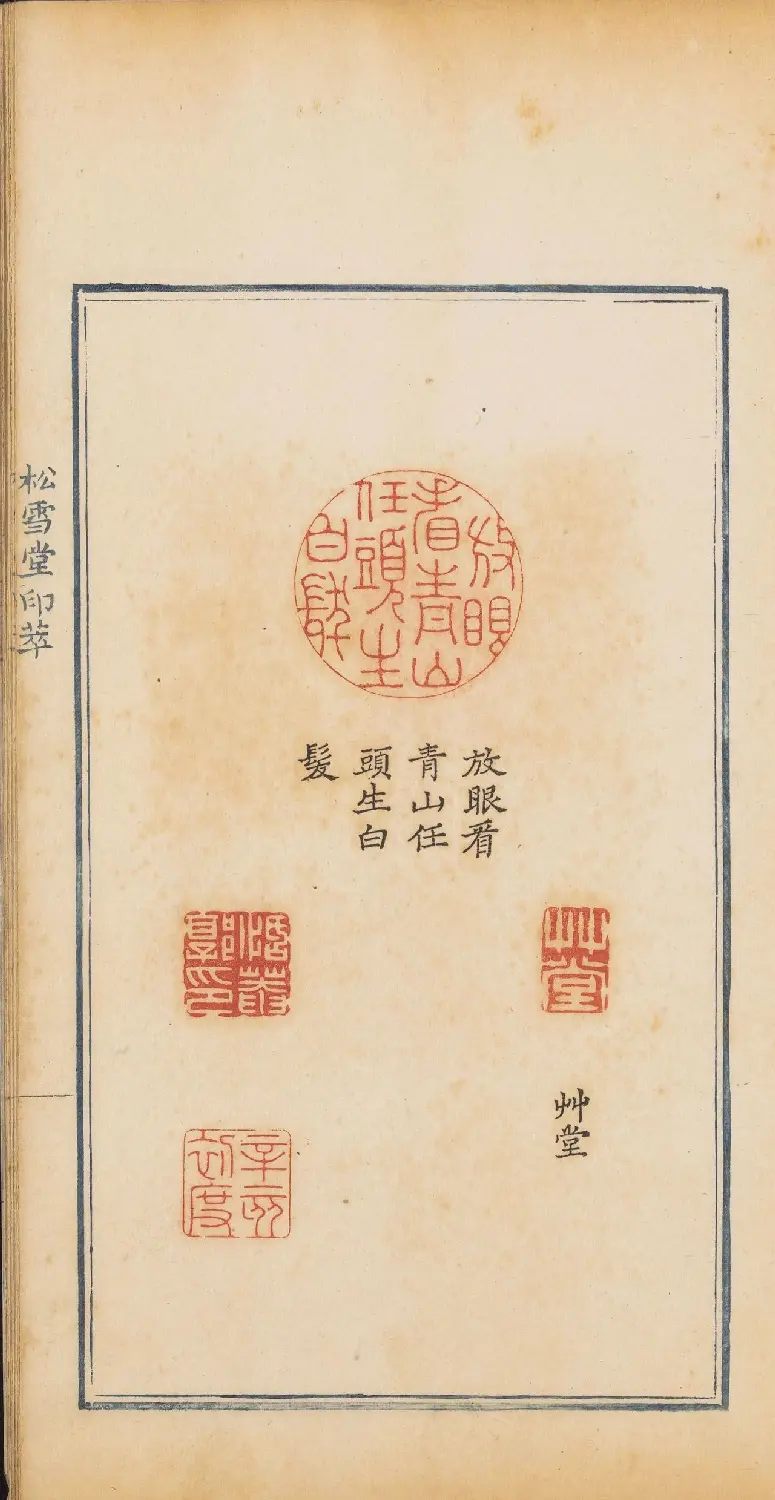 放眼
看青山
任頭生
白髮
放眼看
青山任
頭生白
髮
艸堂
艸堂
郭印
辛
初度
松雪堂印萃